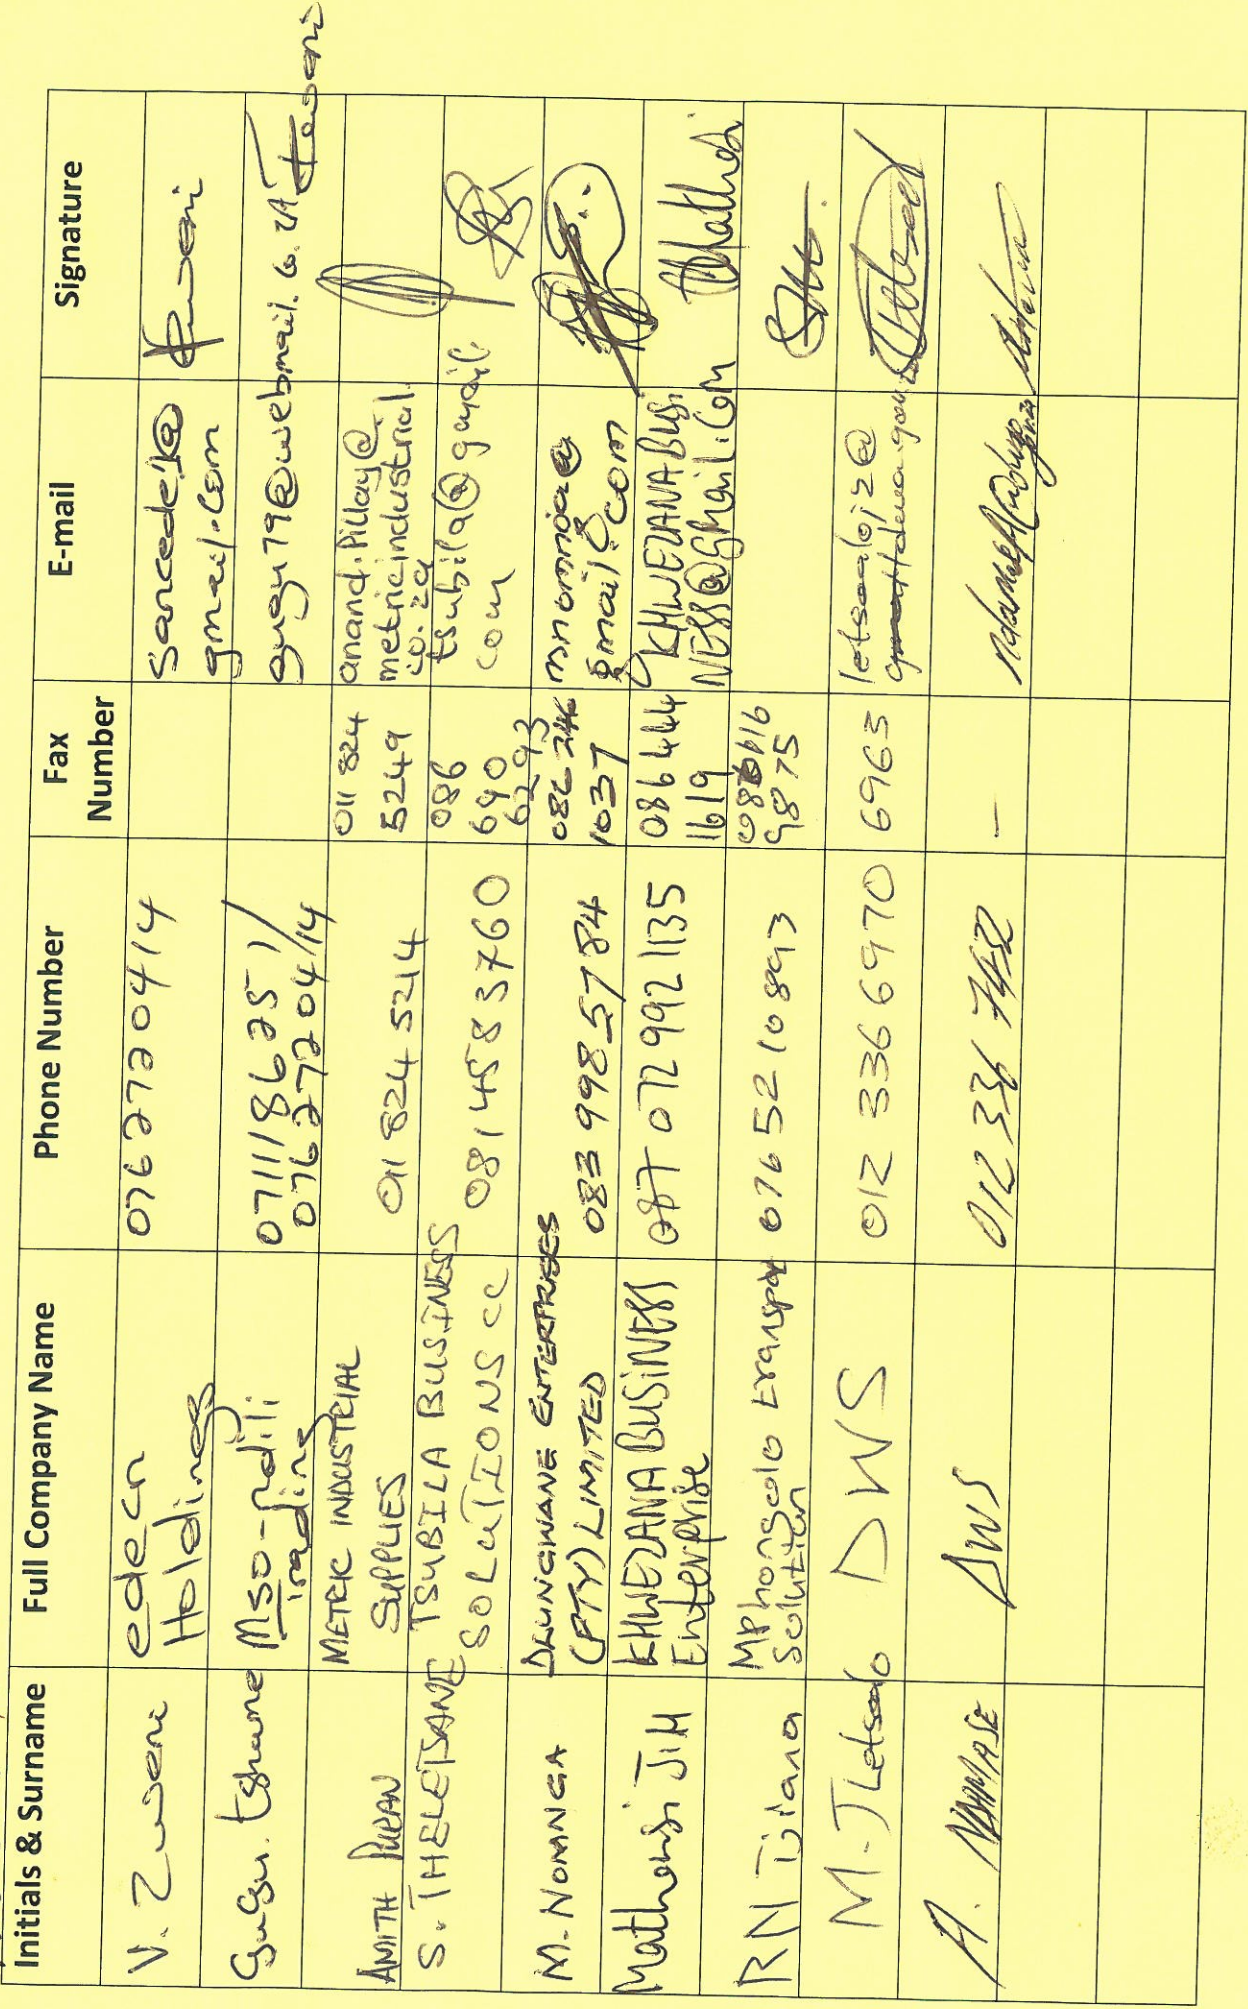 Initials & Surname Full Company Name Phone Number Fax Number E-mail Signature
V. Zweni edecn Holdings 0762720414 Sancedek@
gmail.com Zwweni
Gugu. tshume Mso-ndili
trading 0711186251/
0762720414 gugu79@webmail.co.ZA
AMITH PURAN METRIC INDUSTRIAL
SUPPLIES 011 824 5214 011 824
5249 anand.Pillay@
metricindustrial.
co.za
S. THELETSANE TSUBILA BUSINESS
SOLUTIONS cc 081 458 3760 086
690
6293 tsubila@gmail.
com
M. NOMNGA DLUNGWANE ENTERPRISES
(PTY) LIMITED 083 998 5784 086 246
1037 mnomnga@
gmail.com
Mathonsi JIM KHWEZANA BUSINESS
Enterprise 087 0729921135 086 444
1619 KHWEZANABUSI
NESS@GMAIL.COM Mathosi
RN Tjiana Mphongolo transport
Solution 0765210893 086616
9875
M.J Letsoalo DWS 012 336 6970 6963 letsoaloj2@
A. NDAMASE DWS 012 336 7432 –